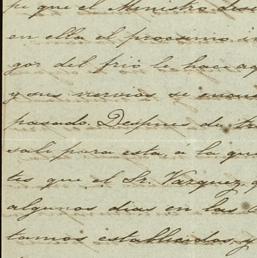 que el Ministro des
en ella el procsimo i
gor del frio le hace a
y sus nervios se
pasado. Despues de tra
sali para esta, a la que
tes que el Sr. Vazquez, q
algunos dias en las
tamos establecidos, y